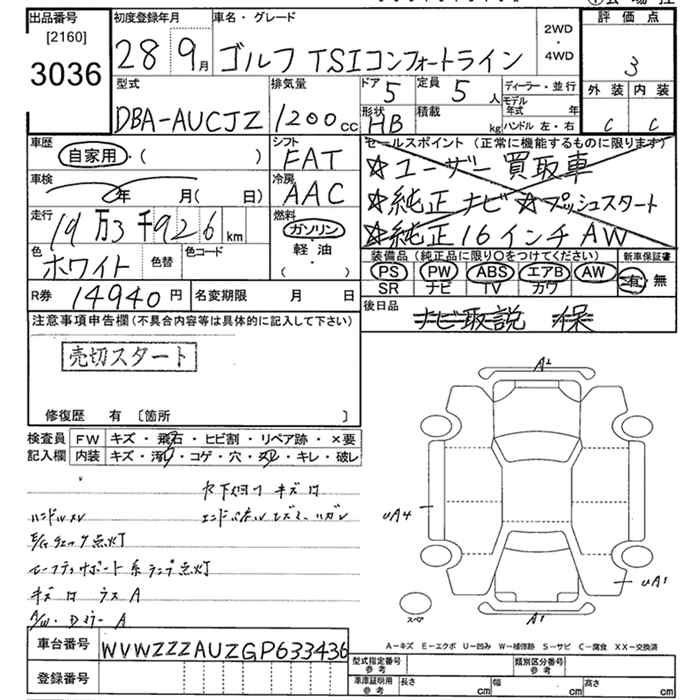 出品番号
[2160]
3036
初度登録年月
28 9月
車名・グレード
ゴルフ TSIコンフォートライン
2WD
・
4WD
評価点
3
外装 内装
C C
型式
DBA-AUCJZ
排気量
1200cc
ドア 5
定員 5人
形状 HB
積載 kg
ディーラー・並行
モデル年式 年
ハンドル 左・右
車歴
自家用・( )
シフト
FAT
車検
年 月( 日)
冷房
AAC
セールスポイント (正常に機能するものに限ります)
☆ユーザー買取車
☆純正ナビ☆プッシュスタート
☆純正16インチAW
走行
19万3千926km
燃料
ガソリン
軽・油
( )
色
ホワイト
色替
色コード
装備品 (純正品に限り○をつけてください)
PS PW ABS エアB AW
SR ナビ TV カワ
新車保証書
有・無
R券 14940円
名変期限 月 日
後日品
ナビ取説 保
注意事項申告欄 (不具合内容等は具体的に記入して下さい)
売切スタート
修復歴 有 〔箇所 〕
検査員記入欄
FW キズ・飛石・ヒビ割・リペア跡・×要
内装 キズ・汚れ・コゲ・穴・スレ・キレ・破レ
ハンドルスレ
E/Gチェック点灯
セーフティサポート系ランプ点灯
A/W・Dミラー A
A2
UA4
UA1
A1
スペア
A-キズ E-エクボ U-凹み W-補修跡 S-サビ C-腐食 XX-交換済
車台番号
WVWZZZAUZGP633436
登録番号
型式指定番号
参考
類別区分番号
参考
車庫証明用
参考
長さ cm 幅 cm 高さ cm